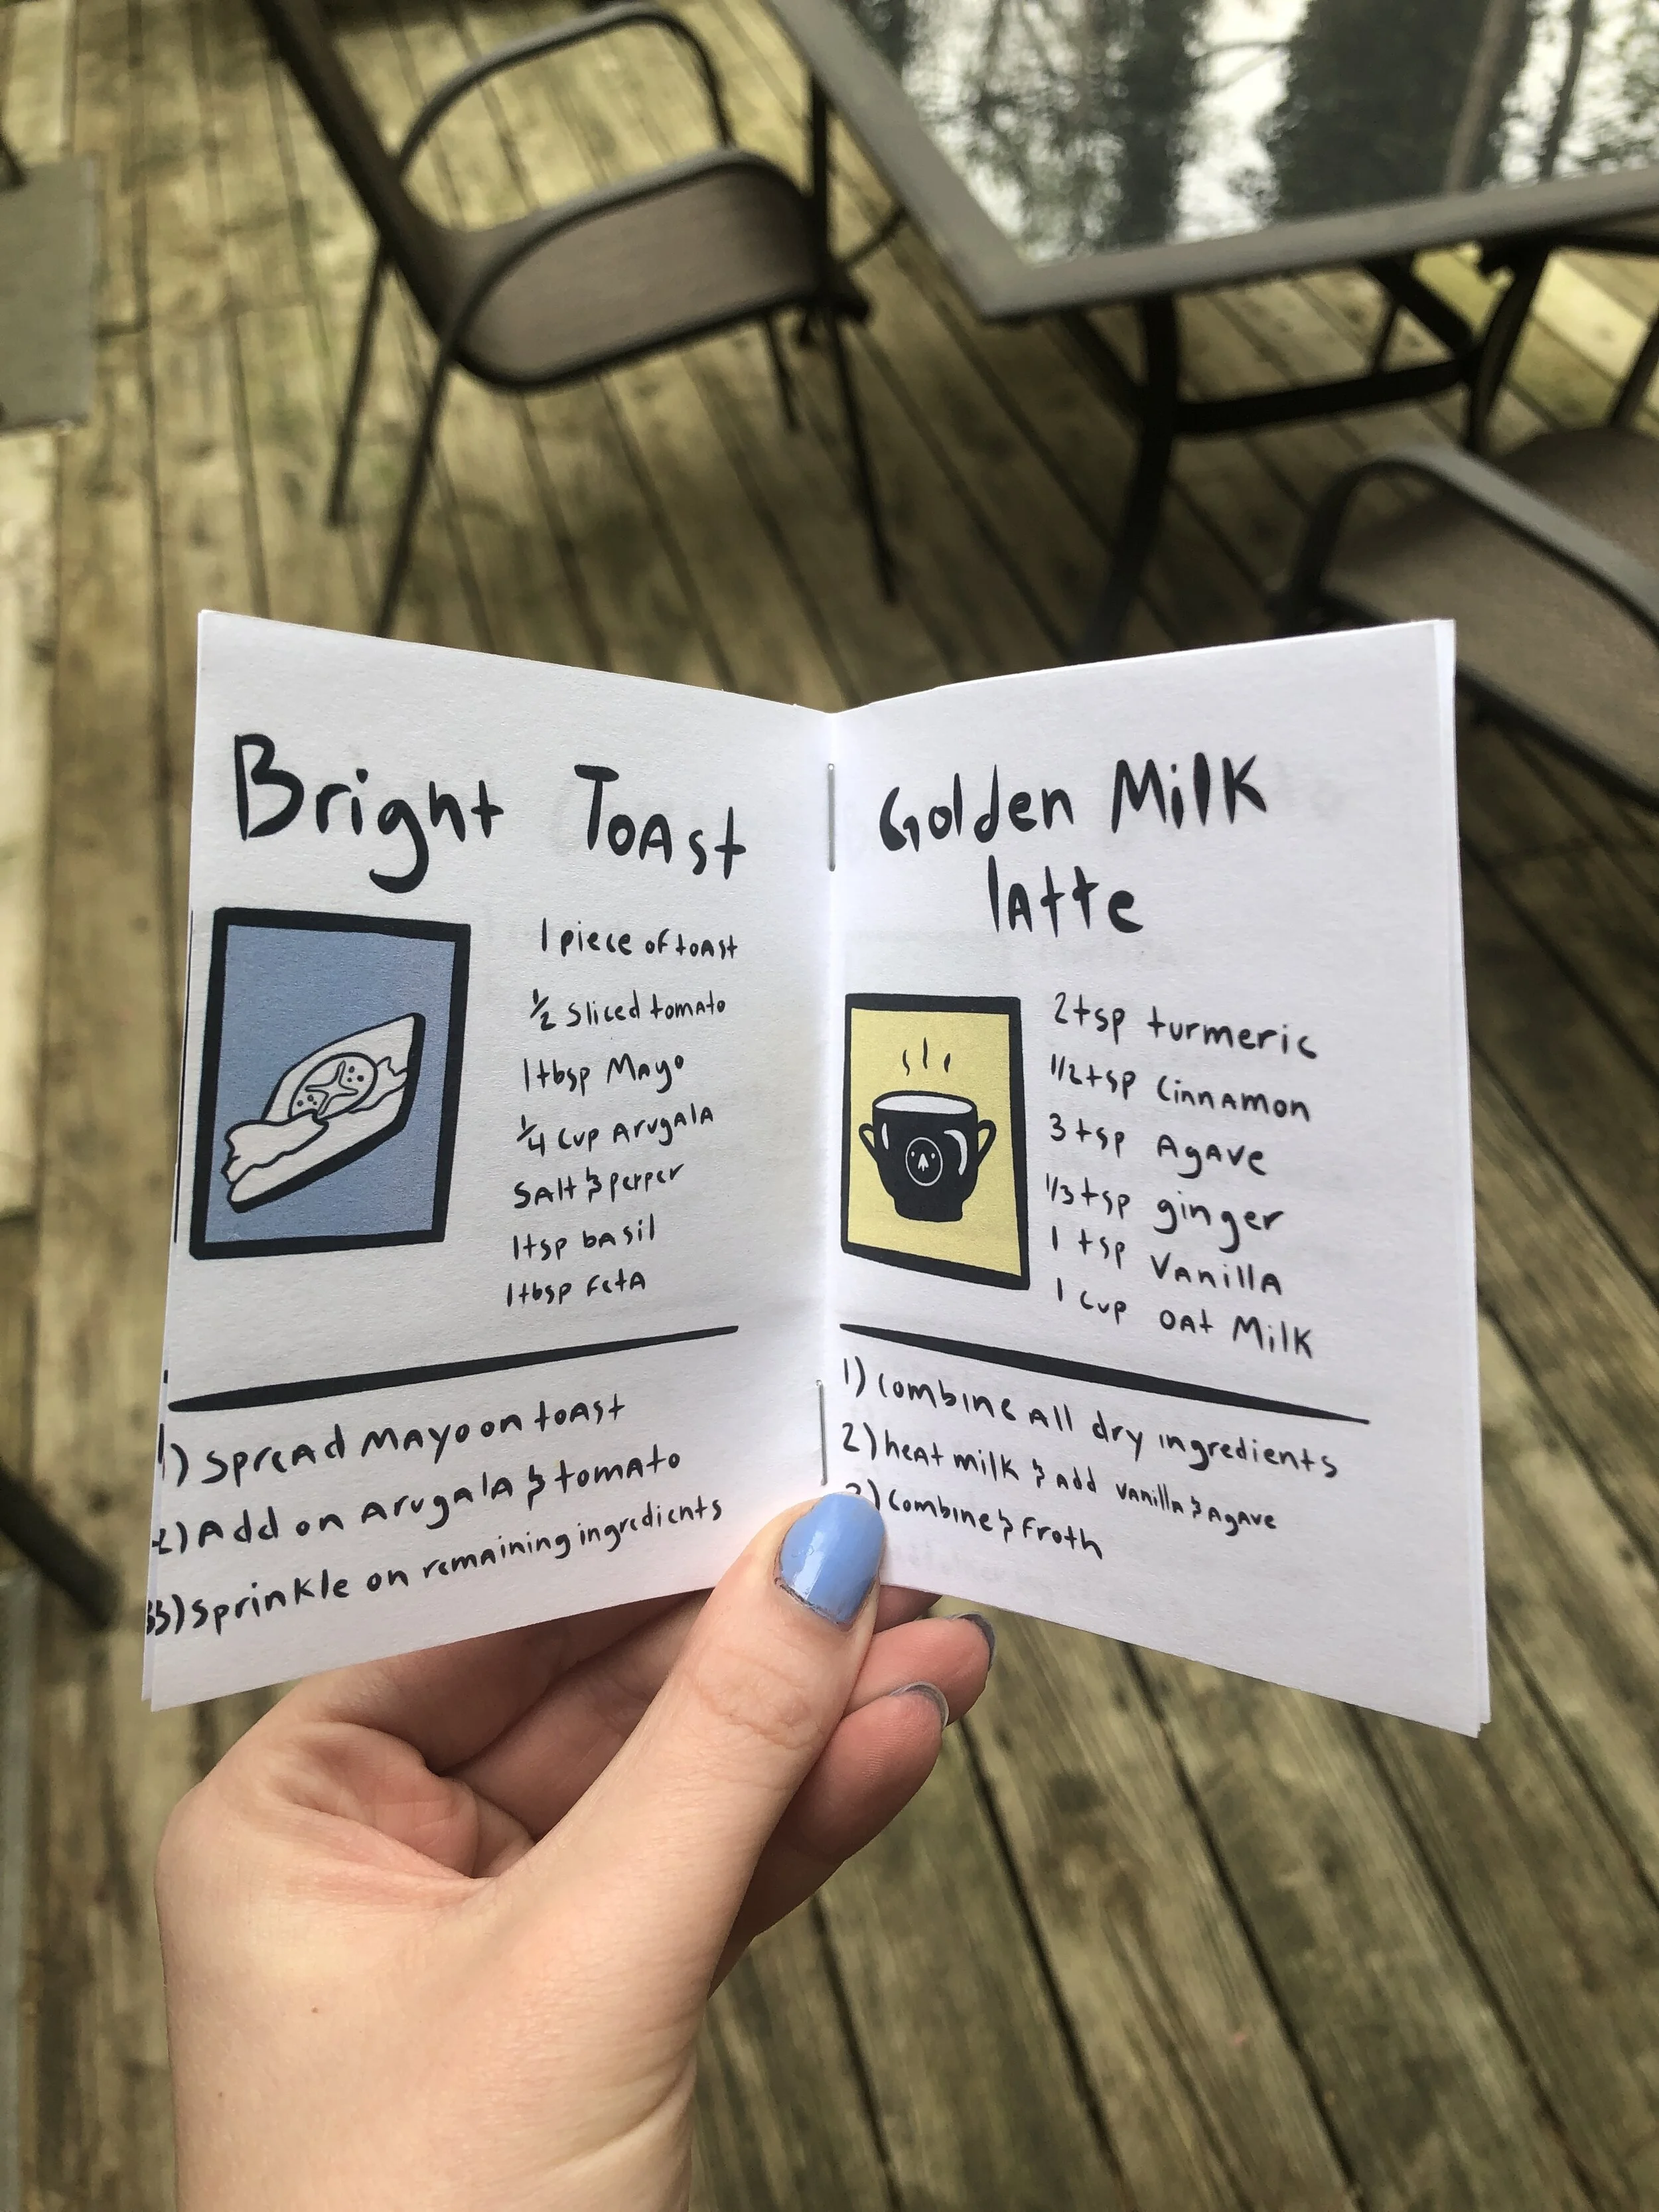 Bright Toast
1 piece of toast
1/2 Sliced tomato
1 tbsp Mayo
1/4 cup Arugala
Salt & pepper
1 tsp basil
1 tbsp feta
1) Spread Mayo on toast
2) Add on Arugala & tomato
3) Sprinkle on remaining ingredients
Golden Milk
latte
2 tsp turmeric
1/2 tsp Cinnamon
3 tsp Agave
1/3 tsp ginger
1 tsp Vanilla
1 cup oat Milk
1) Combine all dry ingredients
2) heat milk & add vanilla & Agave
3) Combine & froth